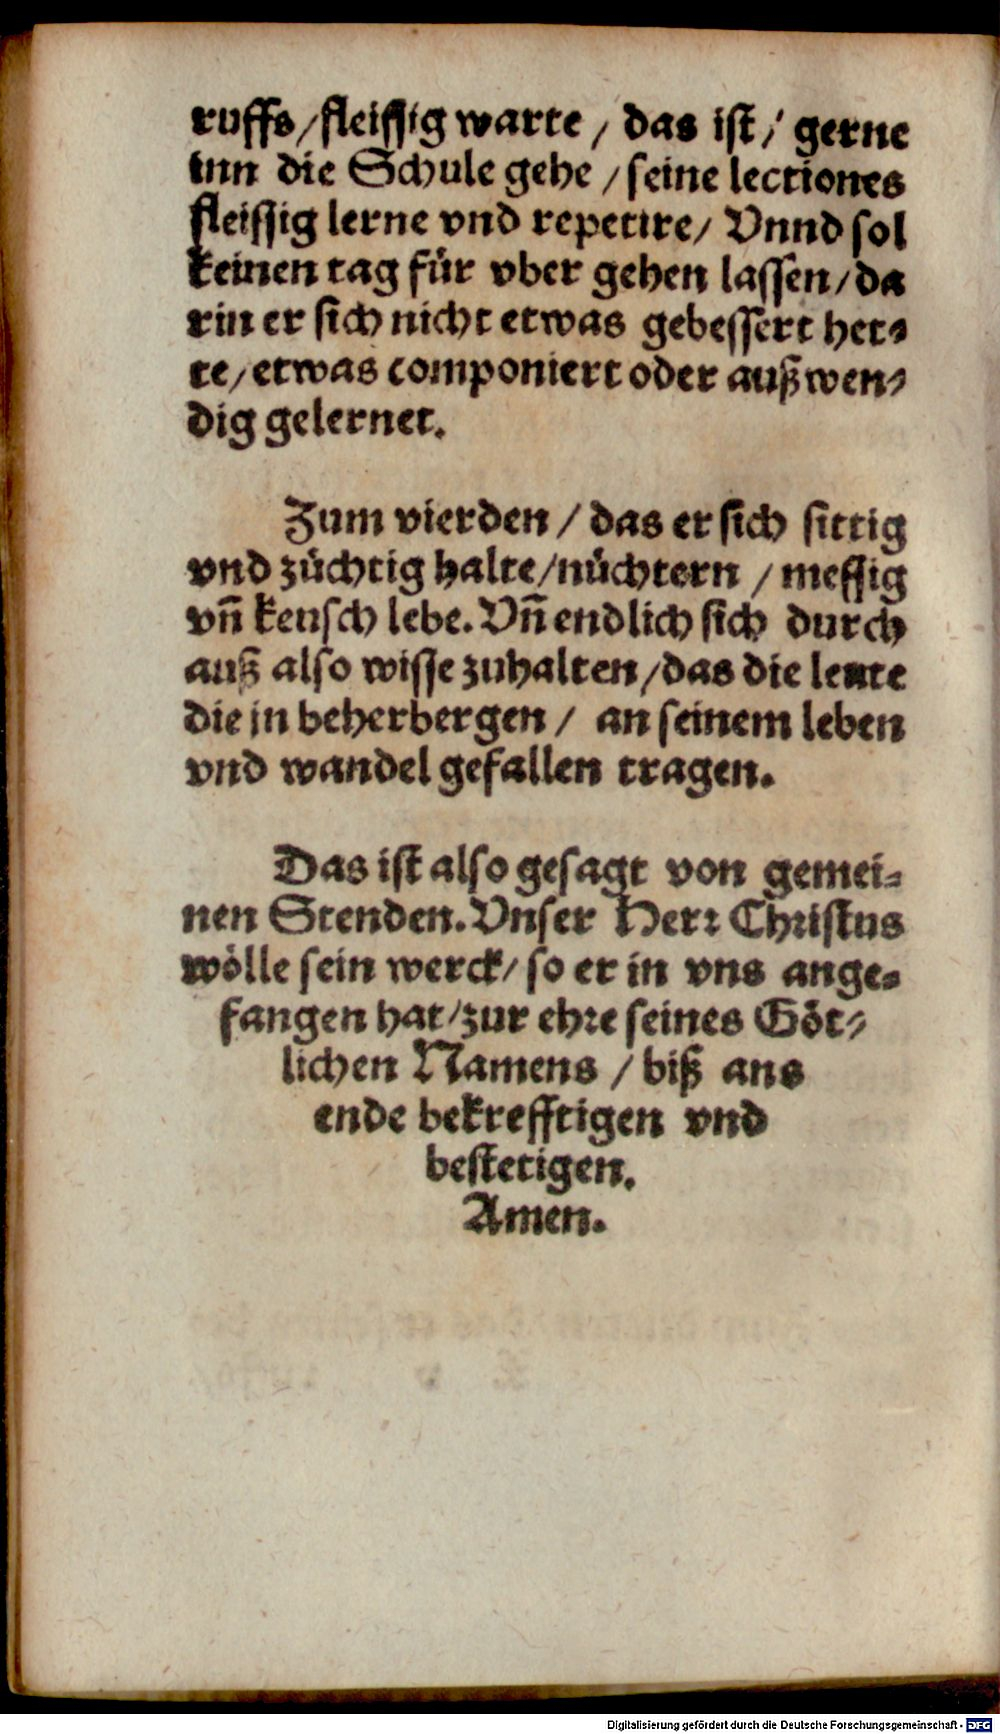 ruffs/fleissig warte / das ist / gerne
inn die Schule gehe / seine lectiones
fleissig lerne vnd repetire/ Vnnd sol
keinen tag für vber gehen lassen/da
rin er sich nicht etwas gebessert het-
te/etwas componiert oder außwen-
dig gelernet.
Zum vierden / das er sich sittig
vnd züchtig halte/nüchtern / messig
vñ keusch lebe. Vñ endlich sich durch
auß also wisse zuhalten/das die leute
die jn beherbergen / an seinem leben
vnd wandel gefallen tragen.
Das ist also gesagt von gemei-
nen Stenden. Vnser Herr Christus
wölle sein werck/ so er in vns ange-
fangen hat/zur ehre seines Göt-
lichen Namens / biß ans
ende bekrefftigen vnd
bestetigen.
Amen.
Digitalisierung gefördert durch die Deutsche Forschungsgemeinschaft - DFG